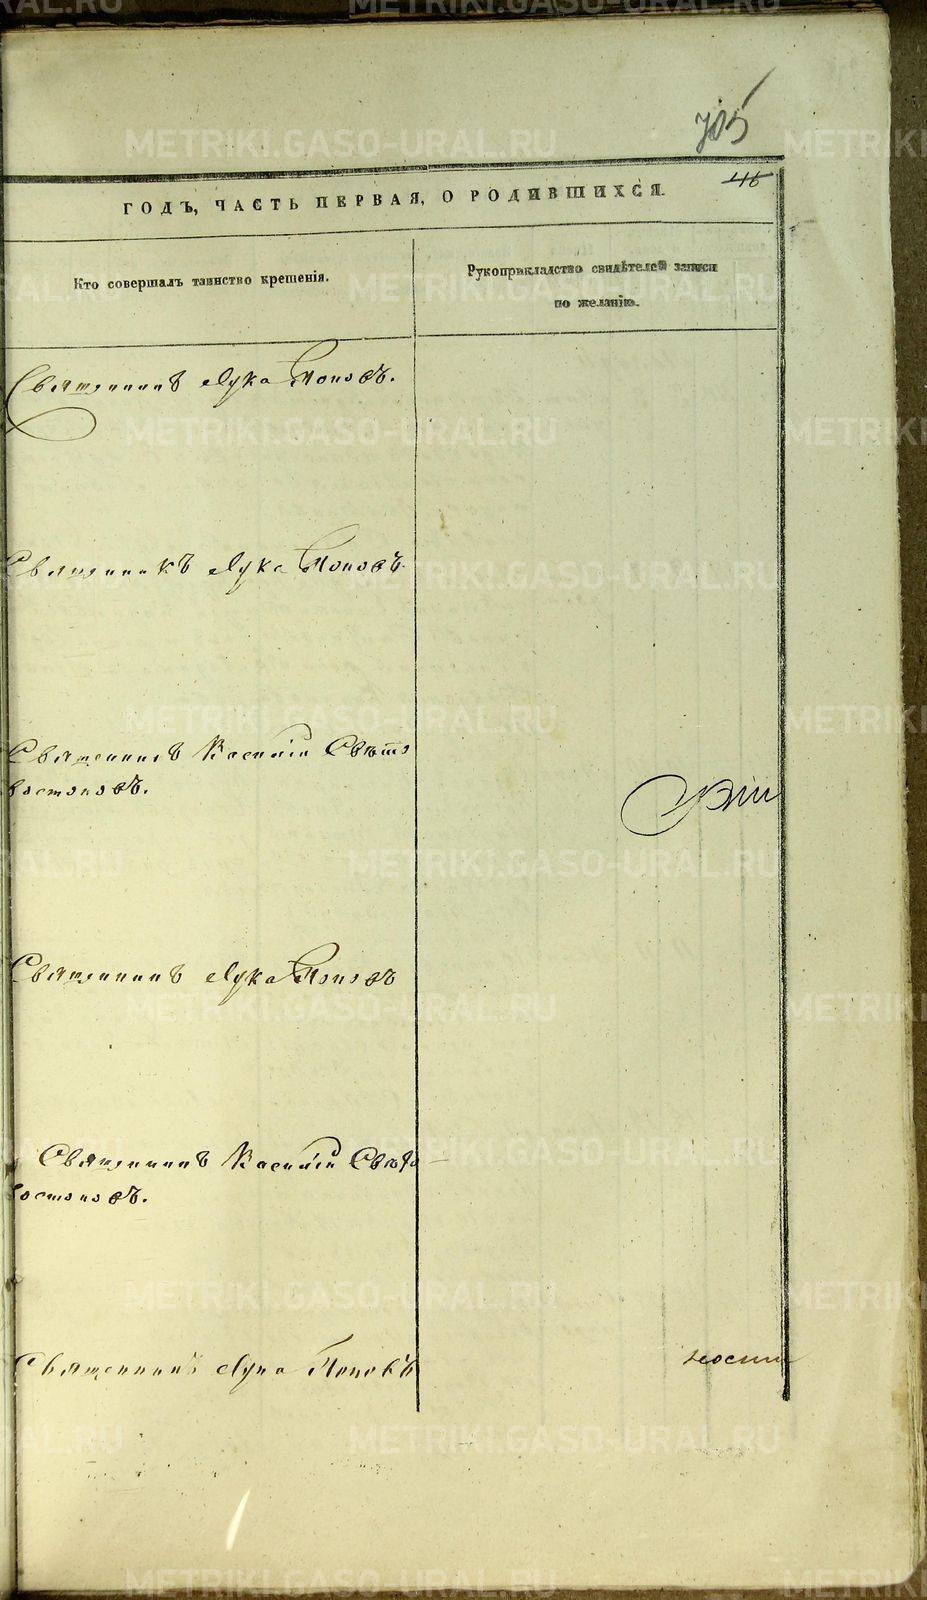 705
46
ГОДЪ, ЧАСТЬ ПЕРВАЯ, О РОДИВШИХСЯ.
Кто совершалъ таинство крещенія.
Рукоприкладство свидѣтелей записи
по желанію.
Священникъ Лука Поповъ.
Священникъ Лука Поповъ.
Священникъ Василій Свѣто
востоковъ.
Священникъ Лука Поповъ
Священникъ Василій Свѣто
востоковъ.
Священникъ Лука Поповъ
METRIKI.GASO-URAL.RU